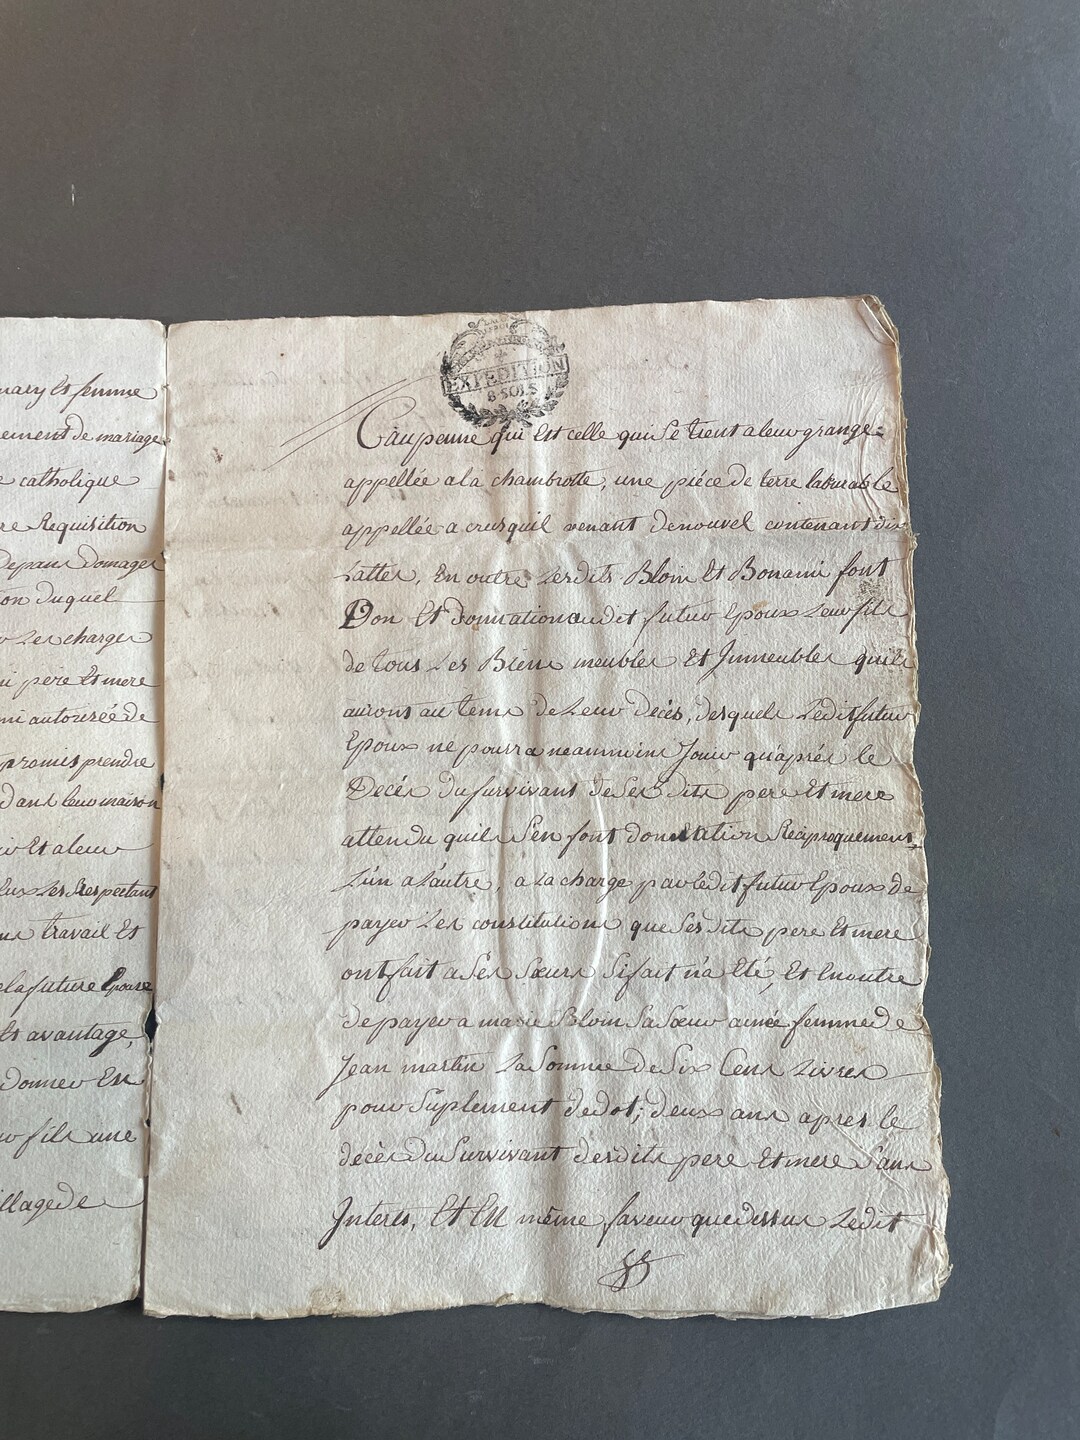 mary Et femme
ement de mariage
e catholique
re Requisition
Depans Domages
on Duquel
Les charges
pere Et mere
mi autorisée de
promis prendre
Dans leur maison
Et a leur
Eux Les Respectant
travail Et
ela future Epouse
Et avantage,
donner En
fils une
illage de
EXPEDITION
8 SOLS
Caupenne qui Est celle qui Se tient a leur grange
appellée a la chambrotte, une piéce de terre labourable
appellée a crusquil venant de nouvel contenant dix
Lattes, En outre Lesdits Bloin Et Bonami font
Don Et Donnation audit futur Epoux Leur fils
de tous Les Biens meubles Et Immeubles quils
aurons au tems de Leur Decés, desquels Ledit futur
Epoux ne pourra neanmoins Jouir qu'aprés le
Decés du survivant de Ses dits pere Et mere
attendu quils S'en font donnation Reciproquement
L'un a L'autre, a La charge par ledit futur Epoux de
payer Les constitutions que Ses dits pere Et mere
ont fait a Ses Sœurs Si fait n'a Eté, Et En outre
de payer a marie Bloin Sa Sœur ainée femme de
Jean martin La Somme de Six Cens Livres
pour Suplement de dot; deux ans apres le
décès du Survivant desdits pere Et mere Sans
Interets, Et En même faveur que dessus Ledit